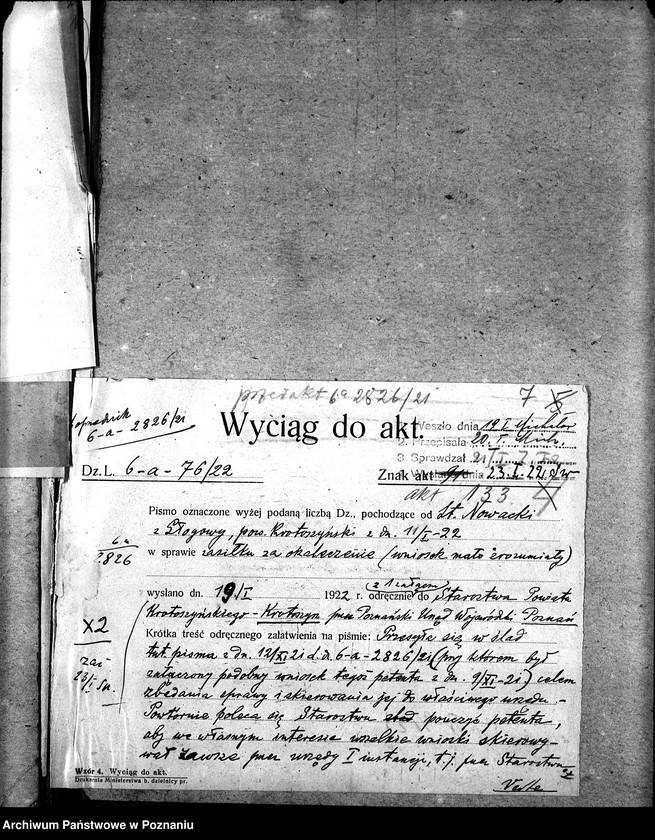 przedakt 6a 2826/21
7
Poprzednik
6-a- 2826/21
Wyciąg do akt.
Weszło dnia 19.I
2. Przepisała 20. I.
3 Sprawdzał 21/I
dnia 23.I.22
Dz. L. 6-a-76/22
Znak akt
akt 133
Pismo oznaczone wyżej podaną liczbą Dz., pochodzące od St. Nowacki
z Głogowy, pow. Krotoszyński z dn. 11/I-22
w sprawie zasiłku za okaleczenie (wniosek mało zrozumiały)
6a
2826
wysłano dn. 19/I 1922 r. odręcznie do Starostwa Powiatu
(z 1 załącz.)
Krotoszyńskiego - Krotoszyn przez Poznański Urząd Wojewódzki Poznań
x2
Krótka treść odręcznego załatwienia na piśmie: Przesyła się w ślad
tut. pisma z dn. 12/XI 21 d. L. 6-a-2826/21 (przy którem był
zał.
23/I
załączony podobny wniosek tegoż petenta z dn. 9/XI-21) celem
zbadania sprawy i skierowania jej do właściwego urzędu.-
Powtórnie poleca się Starostwu pouczyć petenta,
aby we własnym interesie wszelkie wnioski skierowy-
wał zawsze przez urzędy I instancji, t.j. przez Starostwo
Verte
Wzór 4. Wyciąg do akt.
Drukarnia Ministerstwa b. dzielnicy pr.
Archiwum Państwowe w Poznaniu